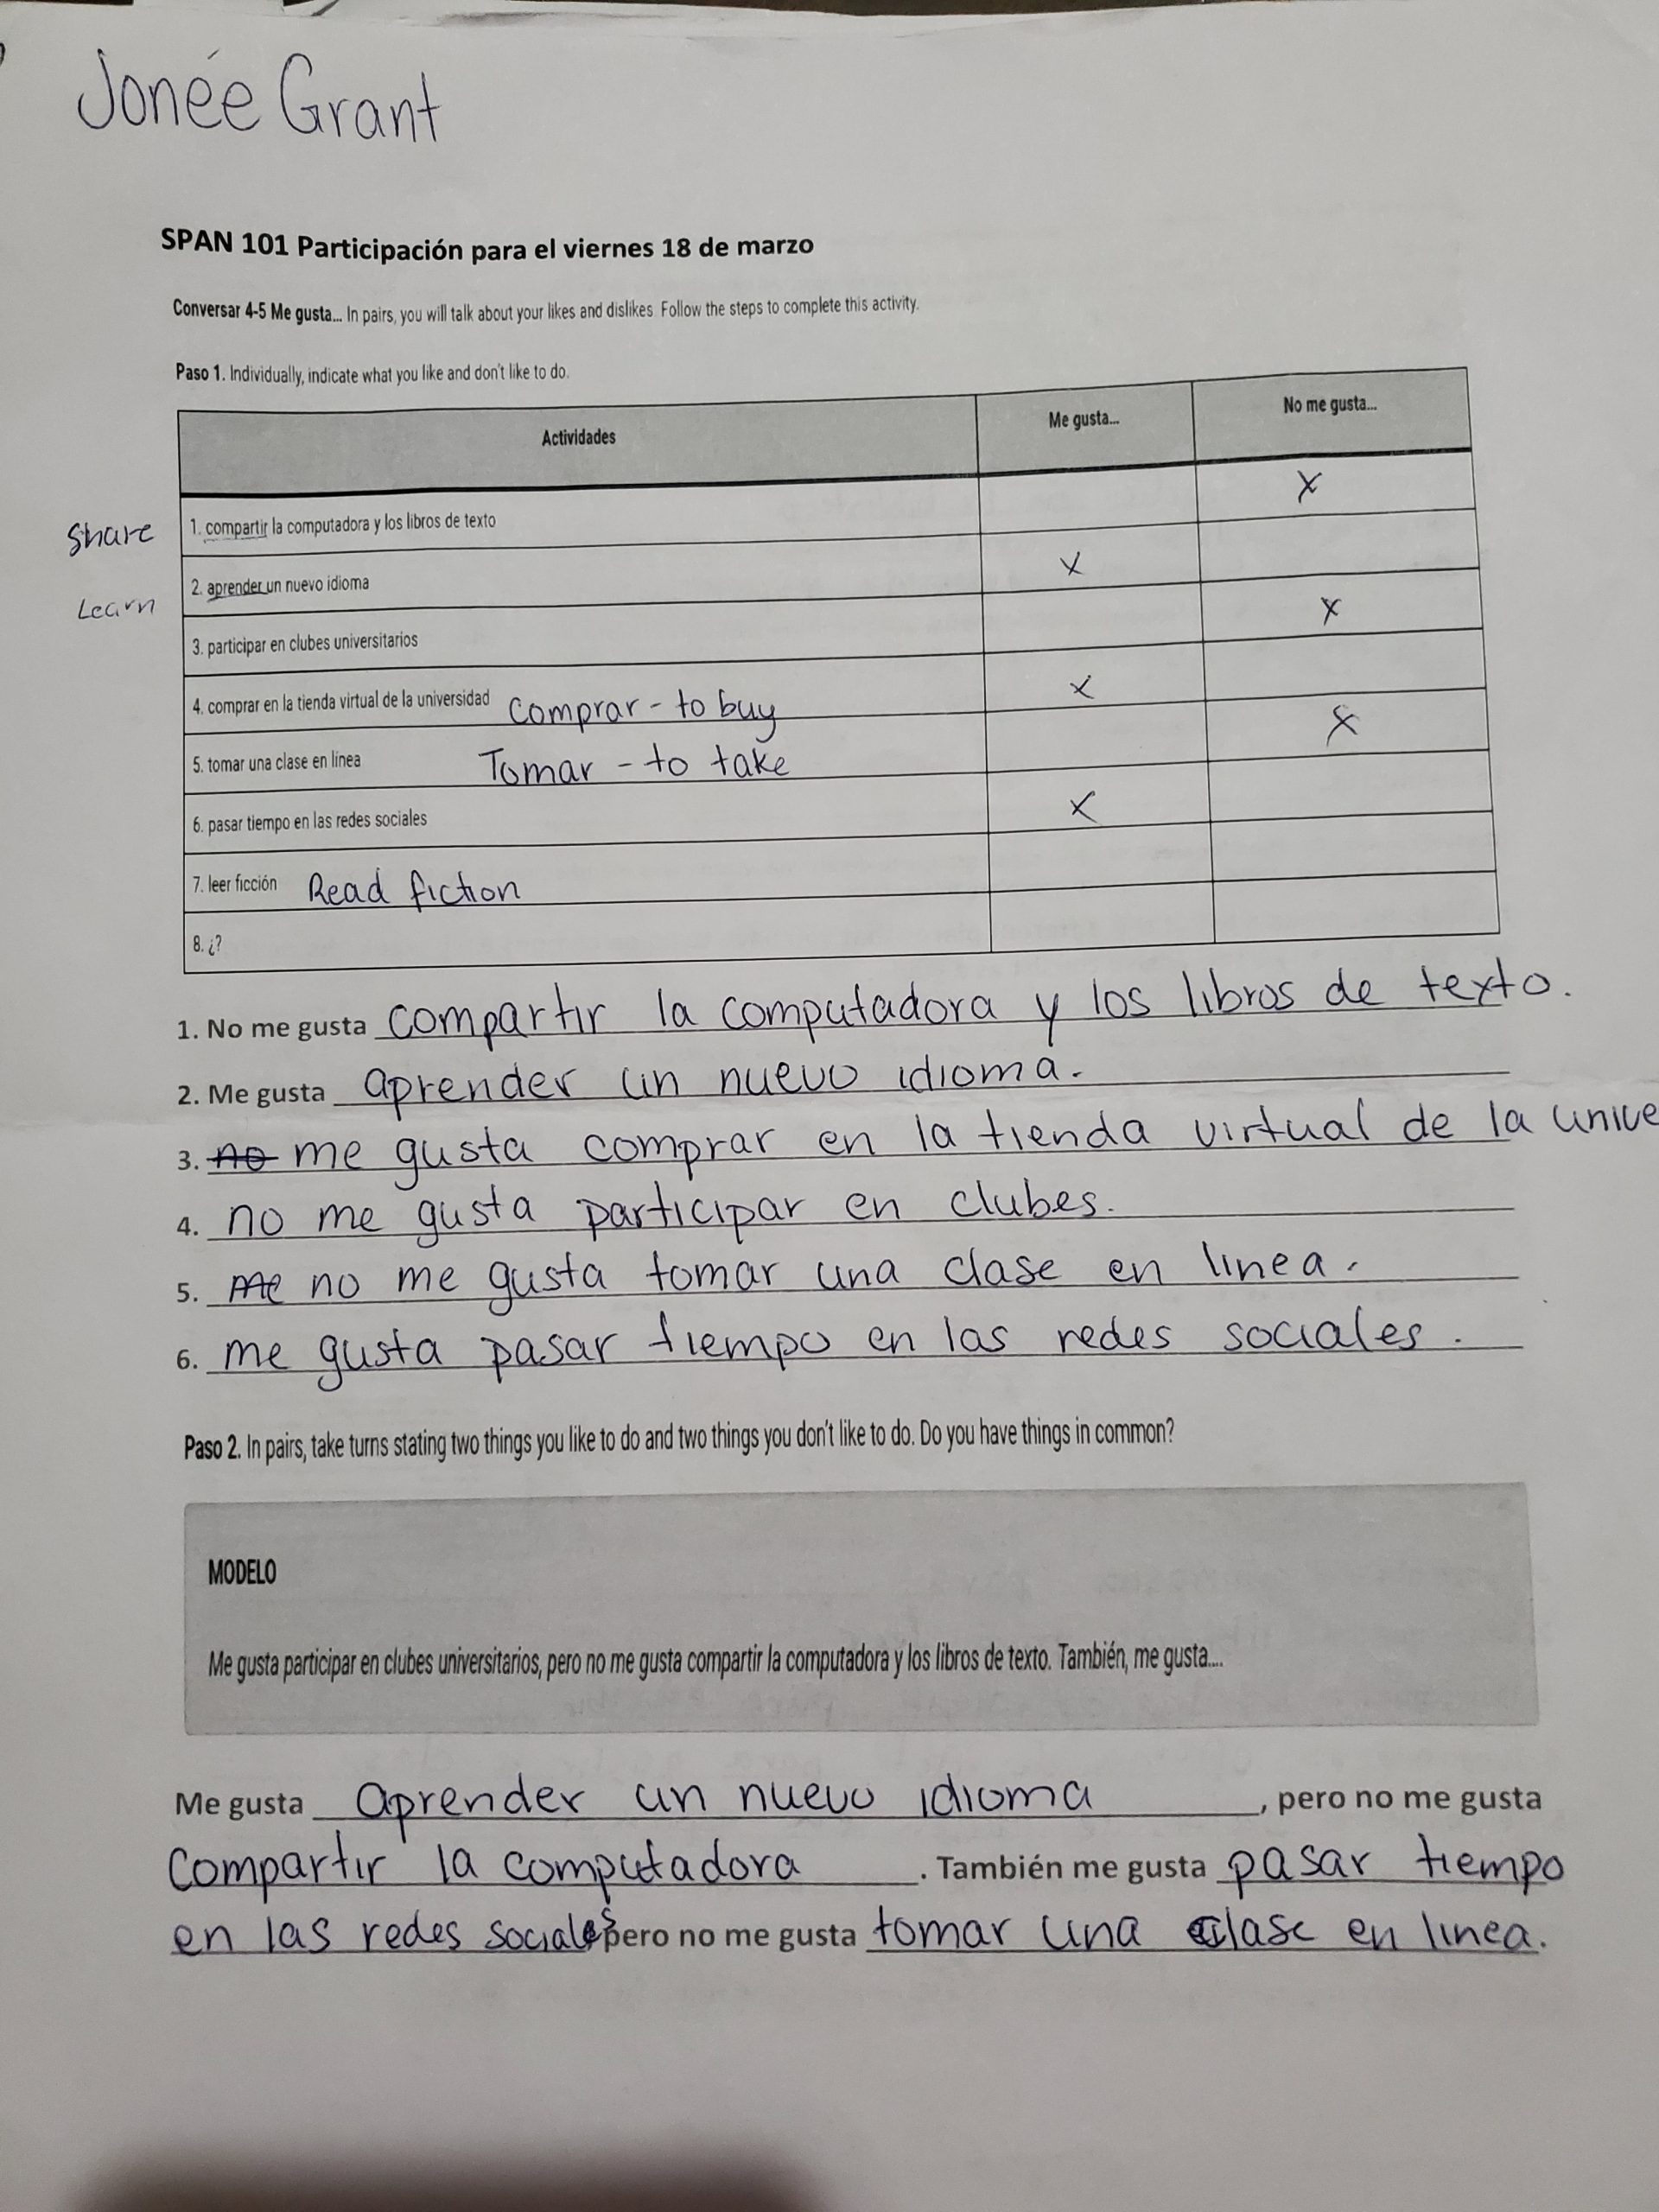 Jonée Grant
SPAN 101 Participación para el viernes 18 de marzo
Conversar 4-5 Me gusta... In pairs, you will talk about your likes and dislikes. Follow the steps to complete this activity.
Paso 1. Individually, indicate what you like and don't like to do.
Actividades Me gusta... No me gusta...
Share 1. compartir la computadora y los libros de texto X
Learn 2. aprender un nuevo idioma X
3. participar en clubes universitarios X
4. comprar en la tienda virtual de la universidad Comprar - to buy X
5. tomar una clase en línea Tomar - to take X
6. pasar tiempo en las redes sociales X
7. leer ficción Read fiction
8. ¿?
1. No me gusta compartir la computadora y los libros de texto.
2. Me gusta aprender un nuevo idioma.
3. no me gusta comprar en la tienda virtual de la unive
4. no me gusta participar en clubes.
5. me no me gusta tomar una clase en linea.
6. me gusta pasar tiempo en las redes sociales.
Paso 2. In pairs, take turns stating two things you like to do and two things you don't like to do. Do you have things in common?
MODELO
Me gusta participar en clubes universitarios, pero no me gusta compartir la computadora y los libros de texto. También, me gusta....
Me gusta aprender un nuevo idioma, pero no me gusta
compartir la computadora. También me gusta pasar tiempo
en las redes sociales pero no me gusta tomar una clase en linea.